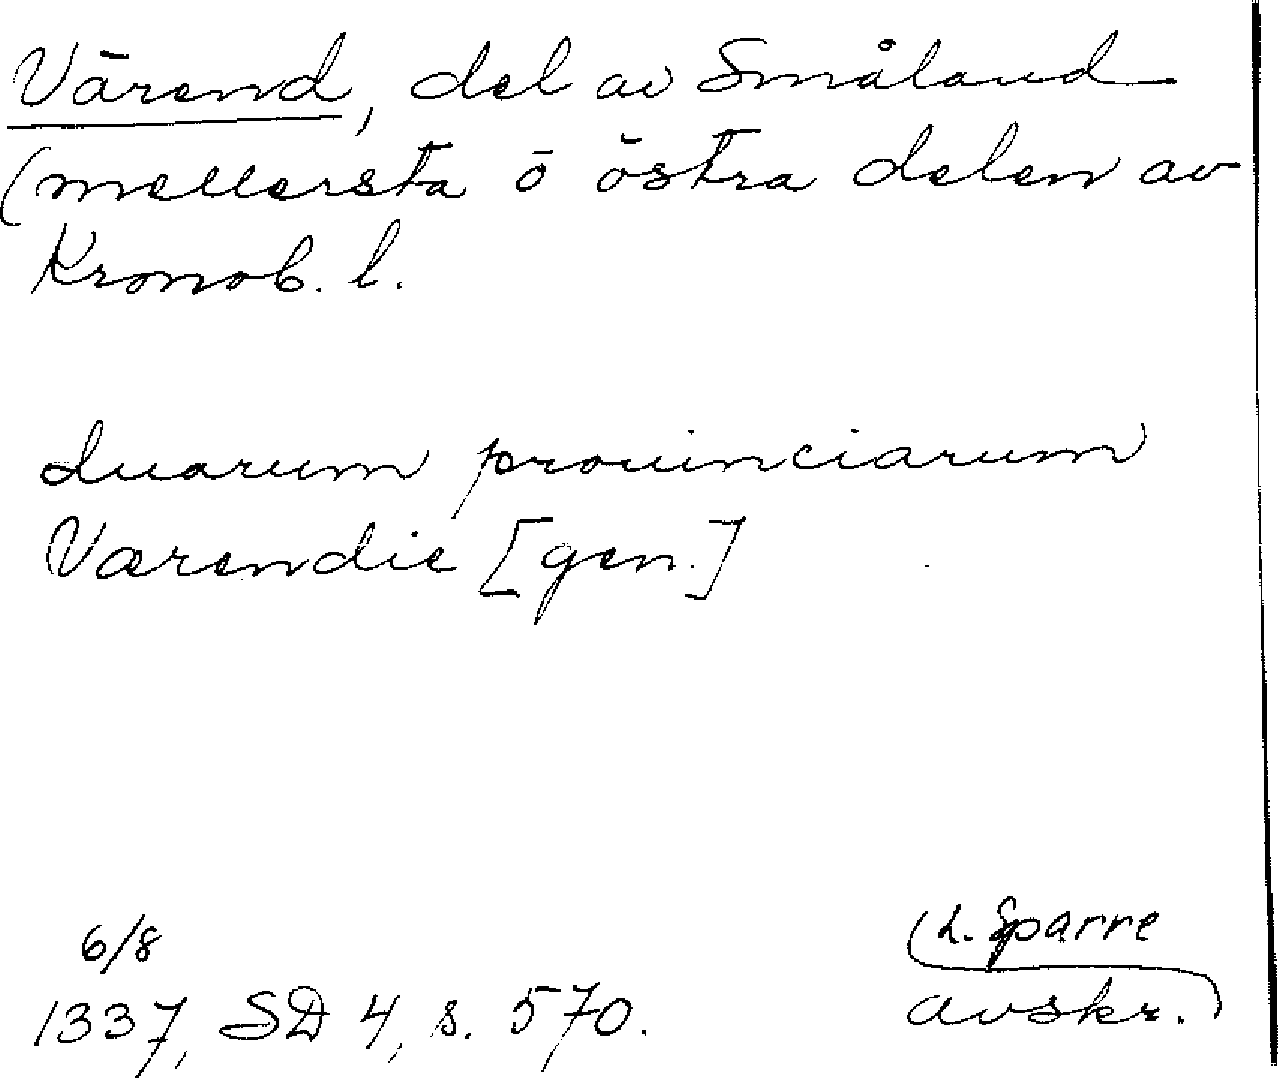 Värend, del av Småland
(mellersta o östra delen av
Kronob. l.
duarum prouinciarum
Værendie [gen.]
6/8
1337, SD 4, s. 570.
L. Sparre
avskr.